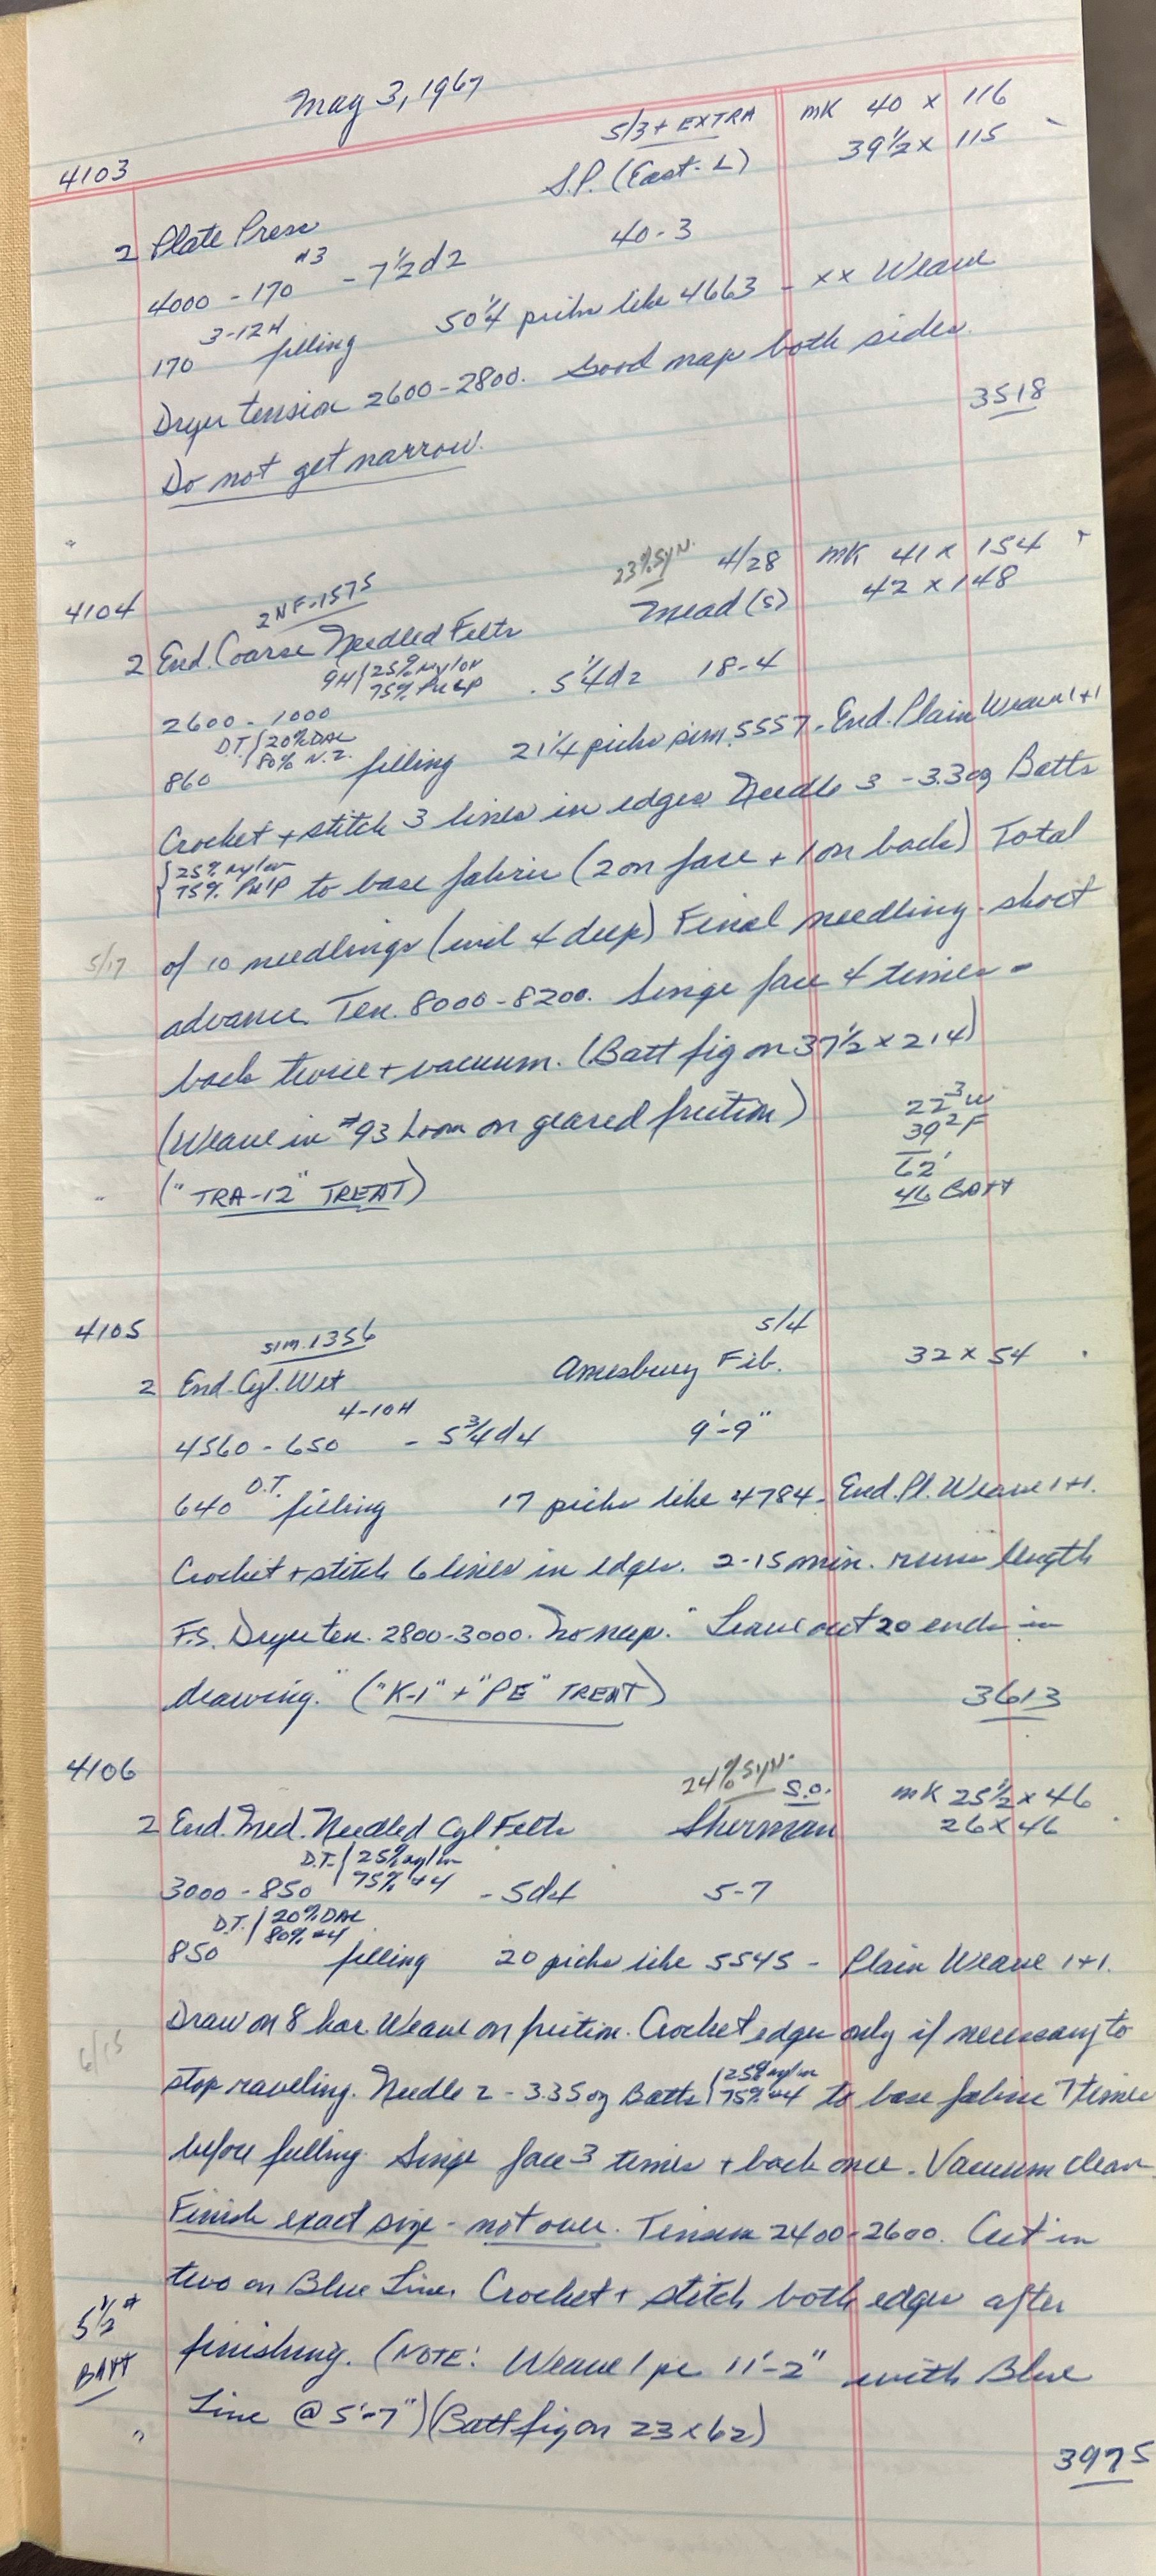 May 3, 1967
4103
5/3 + EXTRA
MK 40 x 116
S.P. (East. L)
39 1/2 x 115
2 Plate Press
40-3
4000 - 170 #3 - 7 1/2 d 2
170 3-12H filling 50 1/4 picks like 4663 - xx Weave
Dryer tension 2600-2800. Good nap both sides.
3518
Do not get narrow.
4104
2 NF-1575
23% SYN.
4/28
MK 41 x 154
Mead (s)
42 x 148
2 End. Coarse Needled Felts
2600 - 1000 9H {25% Nylon 75% Pulp - 5 1/4 d 2 18-4
860 D.T. {20% DAC 80% N.Z. filling 21 1/4 picks sim. 5557 - End. Plain Weave 1+1
Crochet + stitch 3 lines in edges Needle 3 - 3.3 oz Batts
{25% nylon 75% Pulp to base fabric (2 on face + 1 on back) Total
5/17
of 10 needlings (incl 4 deep) Final needling - short
advance. Ten. 8000-8200. Singe face 4 times -
back twice + vacuum. (Batt fig on 37 1/2 x 214)
(Weave in #93 Loom on geared friction)
22 3 W
39 2 F
62 1
46 BATT
("TRA-12" TREAT)
4105
SIM. 1356
5/4
2 End. Cyl. Wet
Amesbury Fib.
32 x 54
4560 - 650 4-10H - 5 3/4 d 4 9'-9"
640 D.T. filling 17 picks like 4784 - End. Pl. Weave 1+1.
Crochet + stitch 6 lines in edges. 2-15 min. runs length
F.S. Dryer ten. 2800-3000. No nap. "Leave out 20 ends in
drawing." ("K-1" + "PE" TREAT)
3613
4106
24% SYN.
S.O.
MK 25 1/2 x 46
2 End. Med. Needled Cyl Felts
Sherman
26 x 46
3000 - 850 D.T. {25% nylon 75% #4 - 5 d 4 5-7
850 D.T. {20% DAC 80% #4 filling 20 picks like 5545 - Plain Weave 1+1.
Draw on 8 har. Weave on friction. Crochet edges only if necessary to
6/15
stop raveling. Needle 2 - 3.35 oz Batts {25% nylon 75% #4 to base fabric 7 times
before fulling. Singe face 3 times + back once. Vacuum clean.
Finish exact size - not over. Tension 2400-2600. Cut in
two on Blue Line. Crochet + stitch both edges after
5 1/2 #
BATT
finishing. (NOTE: Weave 1 pc 11'-2" with Blue
Line @ 5'-7") (Batt fig on 23 x 62)
3975